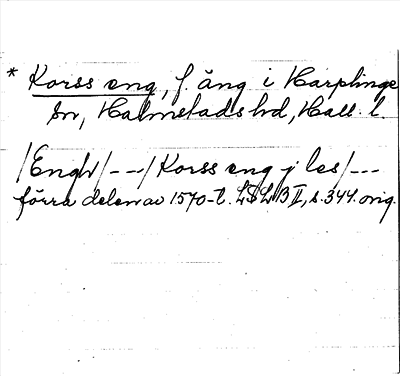 * Korss eng, f. äng i Harplinge
sn, Halmstads hd, Hall. l.
/Engh/ --- / Korss eng j les / ---
förra delen av 1570-t. LSLB II, s. 344. orig.